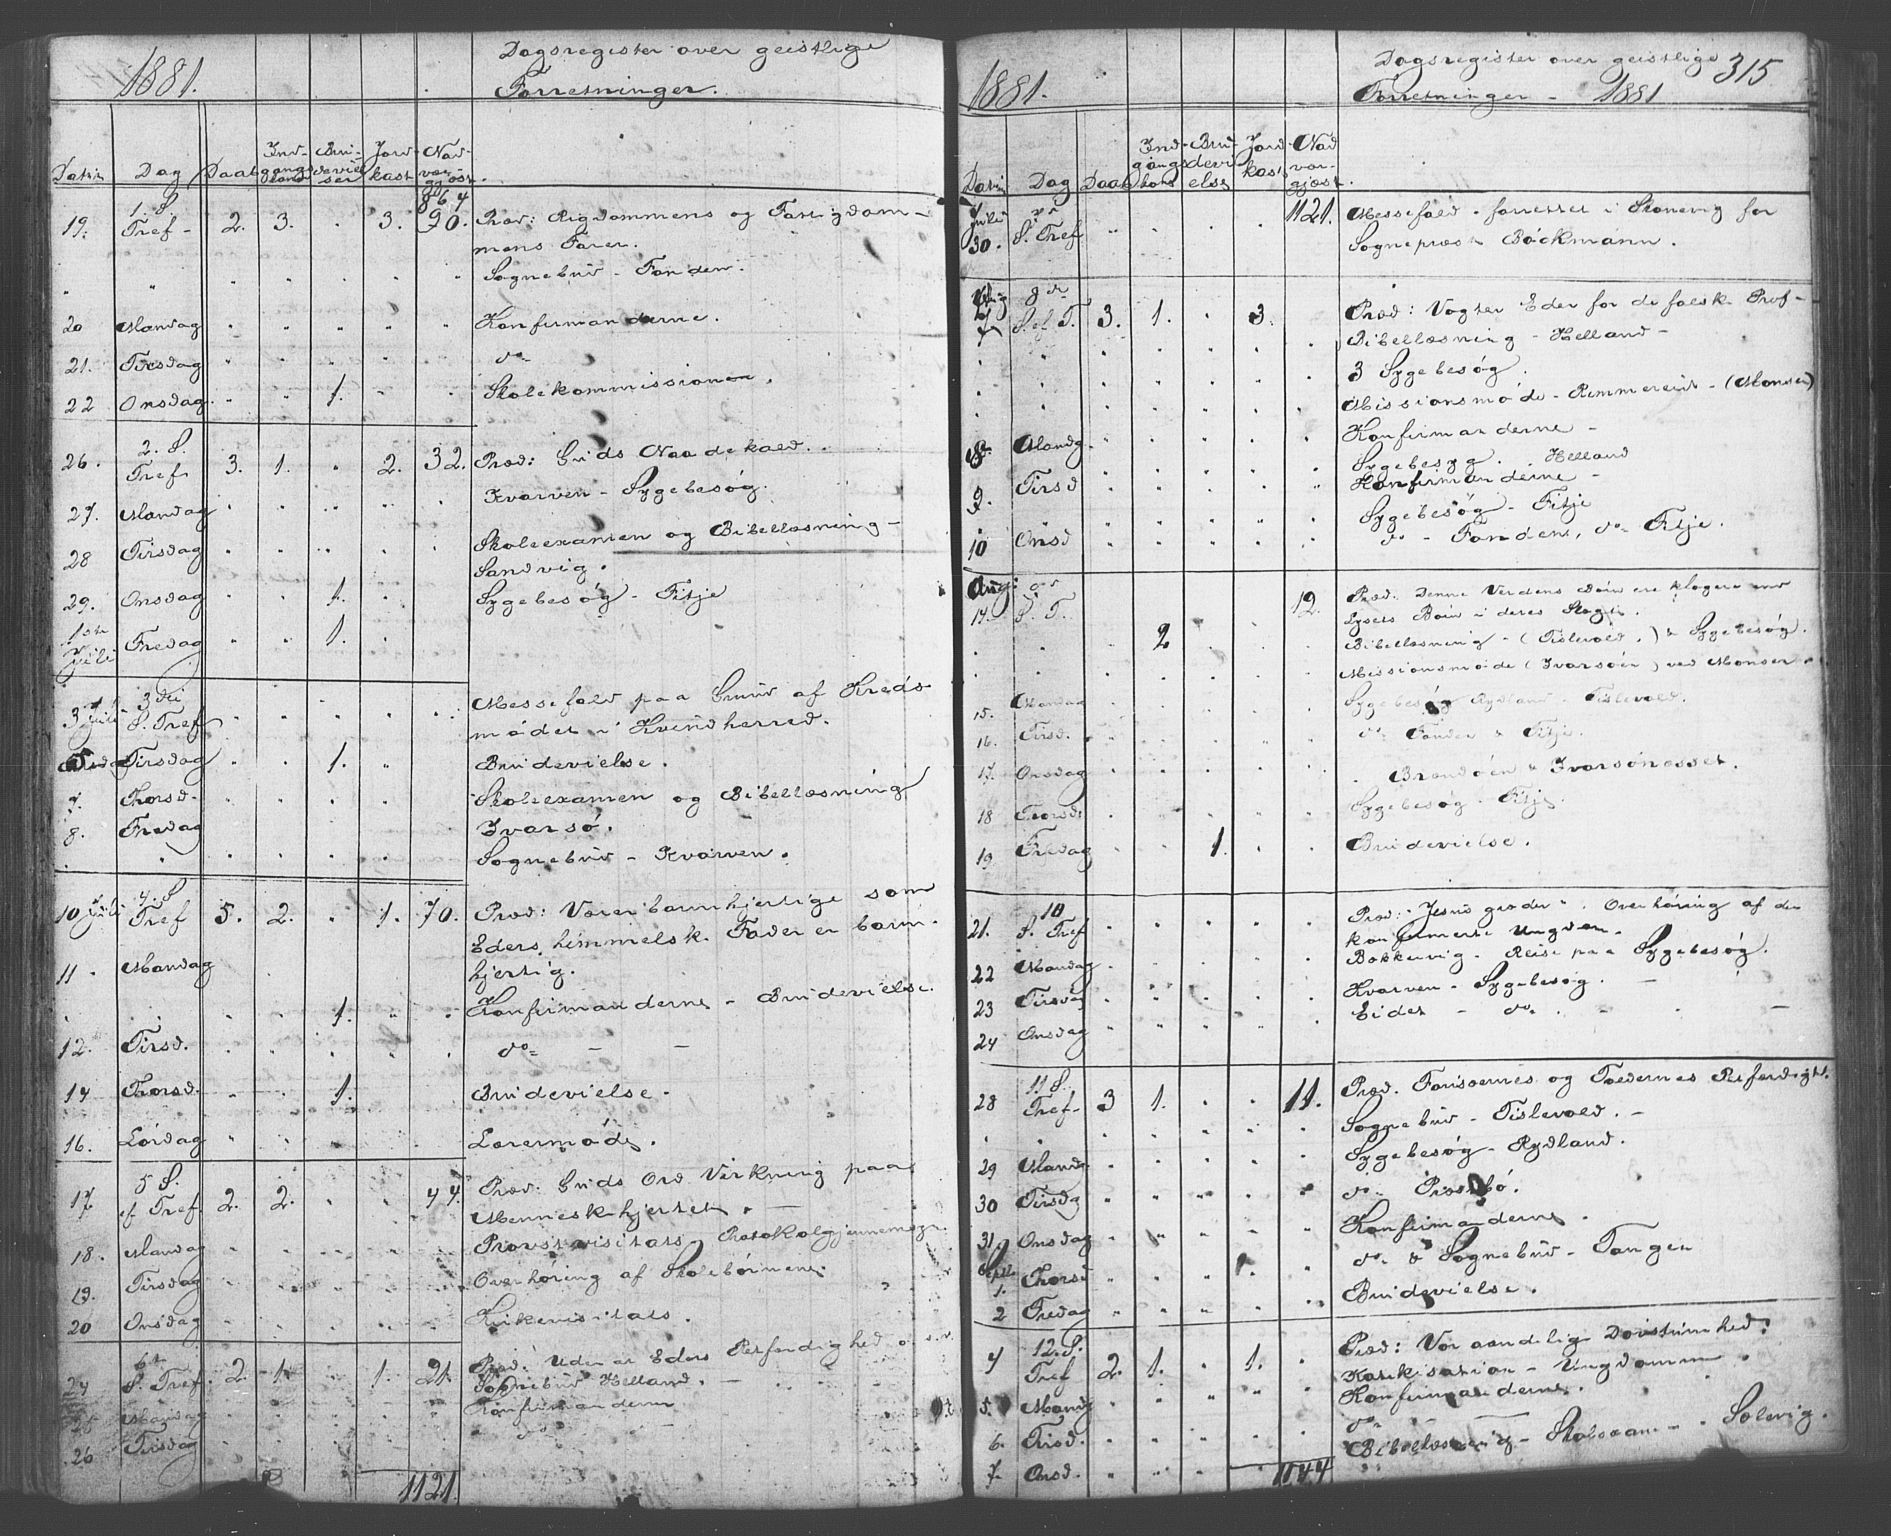 1881. Dagsregister over geistlige
Forretninger.
Datum Dag Daab Ind-gangs-kone Bru-deviel-ser Jord-kast Nad-ver-gjest.
864
19. 1 S. Tref- 2. 3. . 3. 90. Præd: Rigdommens og Fattigdom-
mens Farer.
" " " " . . " Sognebud - Fonden.
20 Mandag " " " " " Konfirmanderne.
21. Tirsdag " " " " do
22 Onsdag " " 1. " " Skolekommissionen.
26. 2. S. Tref. 3. 1. " 2. 32. Præd: Guds Naadekald.
27. Mandag Kvarven - Sygebesøg.
28 Tirsdag Skoleexamen og Bibellæsning -
Sandvig.
29. Onsdag " " 1. " Sygebesøg - Fitje
1ste Juli Fredag " " 1.
3 Juli 3die S. Tref Messefald paa Grund af Kreds-
mødet i Kvindherred.
Tirsdag " " 1. " Brudevielse.
7. Thorsd. Skoleexamen og Bibellæsning
8. Fredag Ivarsø.
Sognebud - Kvarven.
10 Juli 4. S. Tref 5. 2. " 1. 70. Præd: Værer barmhjertige som
Eders himmelsk. Fader er barm-
11. Mandag hjertig.
1. " . Konfirmanderne - Brudevielse.
12. Tirsd. do - -
14 Thorsd. 1. Brudevielse.
16. Lørdag Læremøde.
17. 5 S. ef Tref. 2. 2. " . 44. Præd: Guds Ord Virkning paa
Menneskehjertet. -
18. Mandag Provstevisitats - Protokolgjennemsyn
19. Tirsdag Overhøring af Skolebørnene.
20 Onsdag Kirkevisitats.
24 6te S. Tref. 2. 1. . 1. 21. Præd: Uden at Eders Retfærdighed
Sognebud Helland. -
25 Mandag Konfirmanderne
26 Tirsdag
1121.
1881. Dagsregister over geistlige 315
Forretninger - 1881
Datum Dag Daab Ind-gangs-kone Bru-devi-else Jord-kast Nad-ver-gjest.
Juli 30. S. Tref 1121. Messefald. forrettet i Skonevig for
Sognepræst Böckmann.
7 8de S. ef T. 3. 1. . 3. Præd: Vogter Eder for de falske Prof-
Bibellæsning - Helland -
3 Sygebesøg.
Missionsmøde - Rimmereid - (Monsen)
8 Mandg. Konfirmanderne -
Sygebesøg. Helland
9. Tirsd Konfirmanderne -
Sygebesøg - Fitje
10 Onsd do - Fonden, do Fitje.
Aug: 14. 9de S. T. 12. Præd: Denne Verdens Børn ere klogere end
Lysets Børn i deres Slægt.
2 Bibellæsning - (Tislevold.) & Sygebesøg.
Missionsmøde (Ivarsöen) ved Monsen.
15. Mandag Sygebesøg Rydland - Tislevold.
16. Tirsd. do Fonden & Fitje.
17. Onsdag Brandöen & Ivarsönesset.
18 Thorsd. Sygebesøg - Fitje.
19. Fredag 1. Brudevielse.
21. 10 S. Tref Præd: "Jesus græder". Overhøring af den
konfirmerte Ungdom.
22 Mandag Bakkevig. Reise paa Sygebesøg.
23 Tirsdag Kvarven - Sygebesøg. -
24 Onsdag Eidet - do. - -
28 11 S. Tref- 3 1. . . 11. Præd. Farisæernes og Tolernes Retfærdighd.
Sognebud - Tislevold. -
29 Mandg Sygebesøg - Rydland.
30 Tirsdag do Præstbö.
31. Onsdag Konfirmanderne.
Septr. 1. Thorsd do & Sognebud - Tangen
2 Fredag Brudevielse.
4 12. S. Tref 2. 1. " 1. Præd: Vor aandelig Døvstumhed.
Katekisation - Ungdommen
5. Mandg Konfirmanderne.
6. Tirsd. do -
7. Onsd. Bibellæsning - Skoleexam - Solevig.
1144